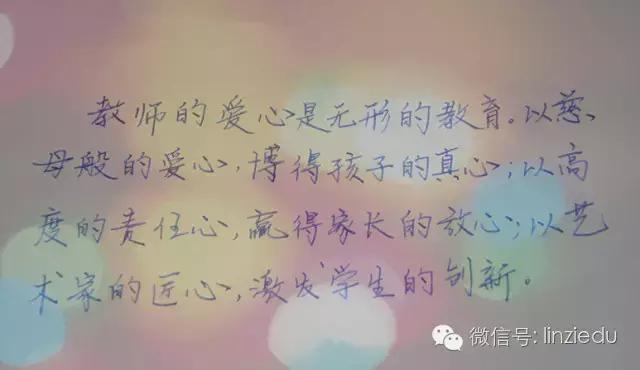 教师的爱心是无形的教育。以慈
母般的爱心，博得孩子的真心；以高
度的责任心，赢得家长的放心；以艺
术家的匠心，激发学生的创新。
微信号: linziedu